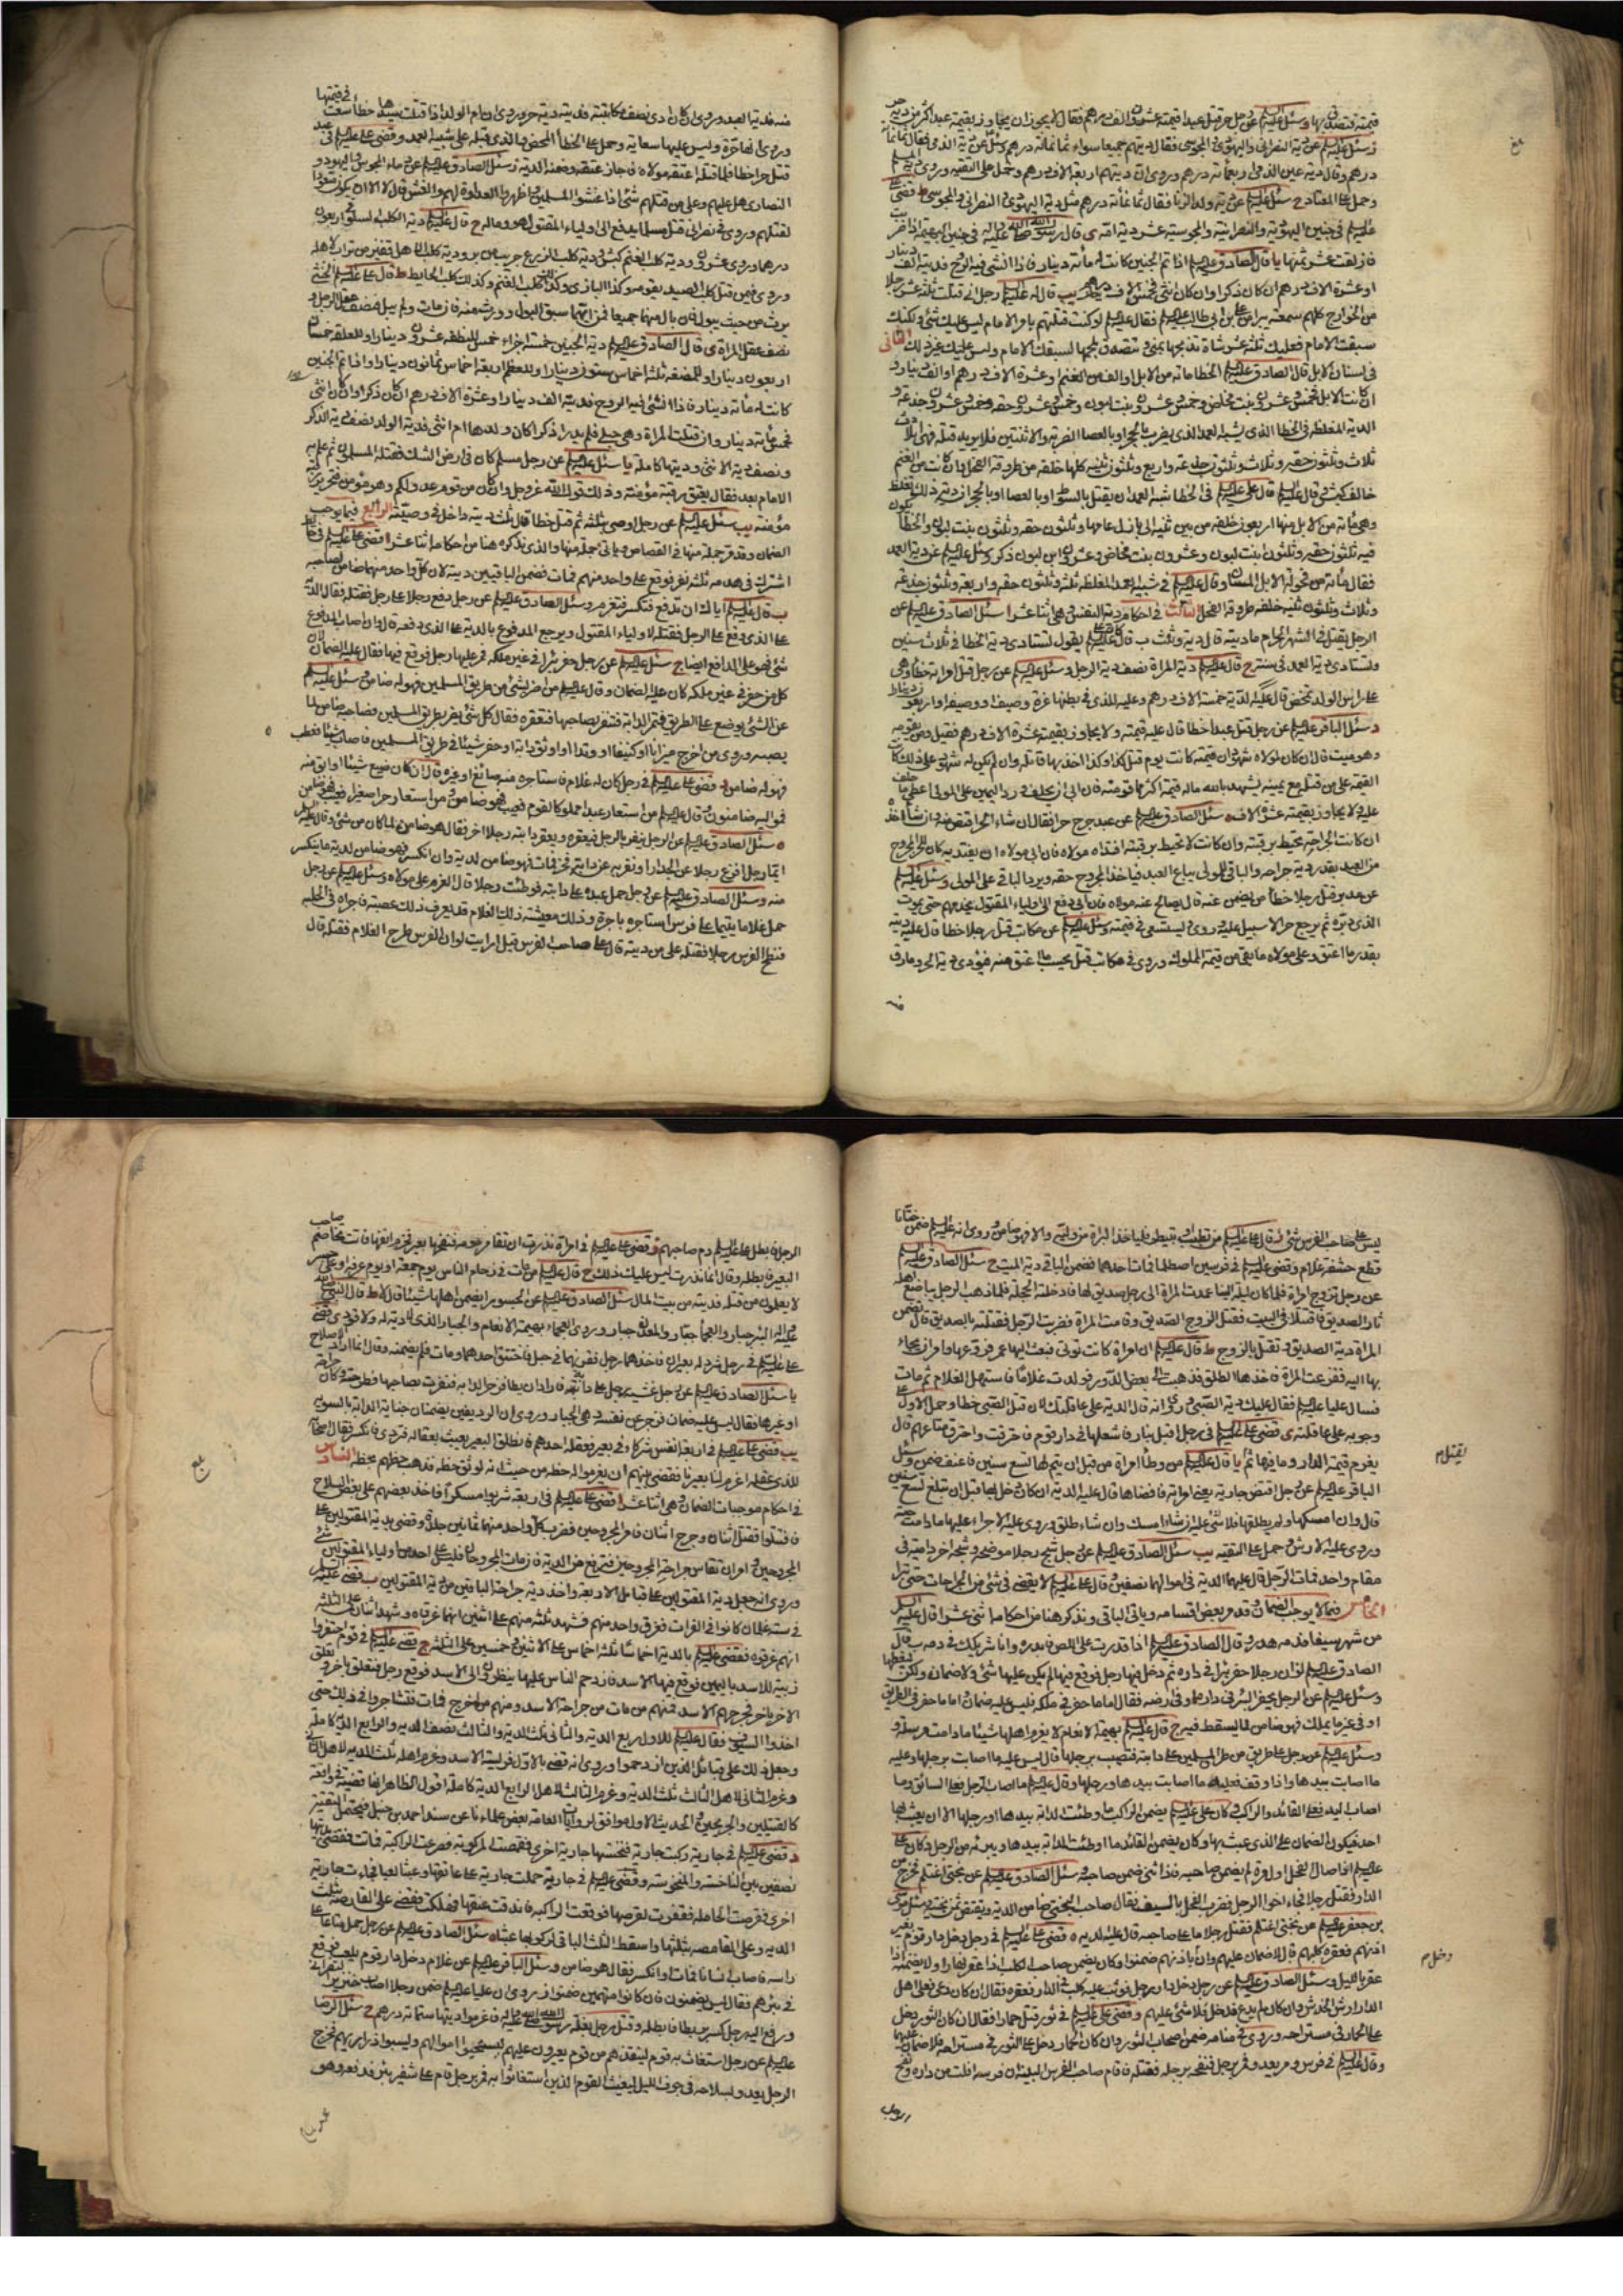 قيمته فتصدق بها وسئل عليه السلم عن رجل حر قتل عبدا قيمته عشرون الف درهم فقال لا يجوز ان يجاوز بقيمة عبد اكثر من دية حر
وسئل عليه السلم عن دية النصراني واليهودي والمجوسي فقال ديتهم جميعا سواء ثمانمائة درهم
درهم وقال دية عين الذمي اربعمائة درهم وروى ان ديتهم اربعة الاف درهم وحمل على التقية
وحمل على المعتاد ح سئل عليه السلم عن دية ولد الزنا فقال ثمانمائة درهم مثل دية اليهودي والنصراني والمجوسي ط قضى
عليه السلم في جنين اليهودية والنصرانية والمجوسية عشر دية امه ى قال رسول الله صلى الله عليه واله في جنين البهيمة اذا ضربت
فازلقت عشر ثمنها يا قال الصادق عليه السلم اذا تم الجنين كانت له مائة دينار فاذا انشئ فيه الروح فديته الف دينار
او عشرة الاف درهم ان كان ذكرا وان كان انثى فخمسة الاف درهم يب قال له عليه السلم رجل اني قتلت ثلثة عشر رجلا
من الخوارج كلهم سمعته يبرأ من علي بن ابي طالب عليه السلم فقال عليه السلم لو كنت قتلتهم بامر الامام لم يكن عليك شئ ولكنك
سبقت الامام فعليك ثلث عشر شاة تذبحها بمنى وتتصدق بلحمها لسبقك الامام وليس عليك غير ذلك الثاني
في اسنان الابل قال الصادق عليه السلم الخطا مائة من الابل او الف من الغنم او عشرة الاف درهم او الف دينار
ان كانت الابل فخمس وعشرون بنت مخاض وخمس وعشرون بنت لبون وخمس وعشرون حقه وخمس وعشرون جذعة و
الدية المغلظة في الخطا الذي يشبه العمد الذي يضرب بالحجر او بالعصا الضربة والاثنتين فلا يريد قتله فهي اثلاث
ثلاث وثلثون حقه وثلاث وثلثون جذعه واربع وثلثون ثنيه كلها خلفه من طروقة الفحل وان كانت من الغنم
فقال مائة من فحولة الابل المسان وقال عليه السلم في شبيه العمد المغلظه ثلثة وثلثون حقه واربعة وثلثون جذعه
وثلاث وثلثون ثنيه خلفه طروقة الفحل الثالث في احكام دية النفس وهي اثنا عشر ا سئل الصادق عليه السلم عن
الرجل يقتل في الشهر الحرام ما ديته قال دية وثلث ب كان علي عليه السلم يقول تستادى دية الخطا في ثلاث سنين
وتستادى دية العمد في سنة ج قال عليه السلم دية المراة نصف دية الرجل وسئل عليه السلم عن رجل قتل امراته خطا وهي
على راس الولد تمخض قال عليه الدية خمسة الاف درهم وعليه للذي في بطنها غرة وصيف او وصيفة او اربعون دينارا
وسئل الباقر عليه السلم عن رجل قتل عبدا خطا قال عليه قيمته ولا يجاوز بقيمته عشرة الاف درهم فقيل ومن يقومه
وهو ميت قال ان كان لمولاه شهود ان قيمته كانت يوم قتل كذا وكذا اخذ بها قاتله وان لم يكن له شهود على ذلك كانت
القيمة على من قتله مع يمينه يشهد بالله ماله قيمة اكثر مما قومته فان ابى ان يحلف ورد اليمين على المولى
عليه ولا يجاوز بقيمته عشرة الاف ه سئل الصادق عليه السلم عن عبد جرح حرا فقال ان شاء الحر اقتص منه وان شاء اخذه
ان كانت الجراحة تحيط برقبته وان كانت لا تحيط برقبته افتداه مولاه فان ابى مولاه ان يفتديه كان للحر المجروح
من العبد بقدر دية جراحه والباقي للمولى يباع العبد فياخذ المجروح حقه ويرد الباقي على المولى وسئل عليه السلم
عن مدبر قتل رجلا خطأ من يضمن عنه قال يصالح عنه مولاه فان ابى دفع الى اولياء المقتول يخدمهم حتى يموت
الذي دبره ثم يرجع حرا لا سبيل عليه وروى يستسعى في قيمته وسئل عليه السلم عن مكاتب قتل رجلا خطا قال عليه ديته
بقدر ما اعتق وعلى مولاه ما بقي من قيمة المملوك وروى في مكاتب قتل يحسب ما اعتق منه فيؤدى دية الحر وما رق
منه فدية العبد وروى ان كان ادى نصف مكاتبته فديته دية حر وروى ان ام الولد اذا قتلت سيدها خطأ سعت في قيمتها
وروى انها حرة وليس عليها سعاية وحمل على الخطأ المحض والذي قبله على شبيه العمد وقضى علي عليه السلم في عبد
قتل حرا خطا فلما قتله اعتقه مولاه فاجاز عتقه وضمنه الدية ز سئل الصادق عليه السلم عن دماء المجوس واليهود و
النصارى هل عليهم وعلى من قتلهم شئ اذا غشوا المسلمين واظهروا العداوة لهم والغش قال لا الا ان يكون متعودا
لقتلهم وروى في نصراني قتل مسلما يدفع الى اولياء المقتول هو وماله ح قال عليه السلم دية الكلب السلوقي اربعون
درهما وروى عشرون ودية كلب الغنم كبش ودية كلب الزرع جريب من بر ودية كلب الاهل قفيز من تراب لاهله
وروى فيمن قتل كلب الصيد يقومه وكذا البازي وكذلك كلب الغنم وكذلك كلب الحايط ط قال علي عليه السلم الخنثى
يورث من حيث يبول فان بال منهما جميعا فمن ايهما سبق البول ورث منه فان مات ولم يبل فنصف عقل الرجل و
نصف عقل المراة ى قال الصادق عليه السلم دية الجنين خمسة اجزاء خمس للنطفة عشرون دينارا وللعلقة خمسان
اربعون دينارا وللمضغة ثلثة اخماس ستون دينارا وللعظم اربعة اخماس ثمانون دينارا واذا تم الجنين
كانت له مأة دينار فاذا انشئ فيه الروح فديته الف دينار او عشرة الاف درهم ان كان ذكرا وان كان انثى
فخمس مأة دينار وان قتلت المراة وهي حبلى فلم يدر اذكرا كان ولدها ام انثى فدية الولد نصف دية الذكر
ونصف دية الانثى وديتها كاملة يا سئل عليه السلم عن رجل مسلم كان في ارض الشرك فقتله المسلمون ثم علم به
الامام بعد فقال يعتق رقبة مؤمنة وذلك قول الله عز وجل وان كان من قوم عدو لكم وهو مؤمن فتحرير رقبة
مؤمنة يب سئل عليه السلم عن رجل اوصى بثلثه ثم قتل خطا قال ثلث ديته داخل في وصيته الرابع فيما يوجب
الضمان وقد مر جملة منها في القصاص وياتي جملة منها والذي نذكره هنا من احكامه اثنا عشر ا قضى علي عليه السلم في حايط
اشترك في هدمه ثلثة نفر فوقع على واحد منهم فمات فضمن الباقيين ديته لان كل واحد منهما ضامن لصاحبه
ب قال عليه السلم اياك ان تدفع فتكسر فتغرم وسئل الصادق عليه السلم عن رجل دفع رجلا على رجل فقتله فقال الدية
على الذي وقع على الرجل فقتله لاولياء المقتول ويرجع المدفوع بالدية على الذي دفعه قال وان اصاب المدفوع
شئ فهو على الدافع ايضا ج سئل عليه السلم عن رجل حفر بئرا في غير ملكه فمر عليها رجل فوقع فيها فقال عليه الضمان لان
كل من حفر في غير ملكه كان عليه الضمان وقال عليه السلم من اضر بشئ من طريق المسلمين فهو له ضامن وسئل عليه السلم
عن الشئ يوضع على الطريق فتمر الدابة فتنفر بصاحبها فتعقره فقال كل شئ يضر بطريق المسلمين فصاحبه ضامن لما
يصيبه وروى من اخرج ميزابا او كنيفا او وتدا او اوثق دابة او حفر شيئا في طريق المسلمين فاصاب شيئا فعطب
فهو له ضامن د قضى علي عليه السلم في رجل كان له غلام فاستاجره منه صائغ او غيره قال ان كان ضيع شيئا او ابق منه
فمواليه ضامنون وقال عليه السلم من استعار عبدا مملوكا لقوم فعيب فهو ضامن ومن استعار حرا صغيرا فعيب فهو ضامن
ه سئل الصادق عليه السلم عن الرجل ينفر بالرجل فيعقره ويعقر دابته رجلا اخر فقال هو ضامن لما كان من شئ وقال عليه السلم
ايما رجل افزع رجلا عن الجدار او نفر به عن دابته فخر فمات فهو ضامن لديته وان انكسر فهو ضامن لدية ما ينكسر
منه وسئل الصادق عليه السلم عن رجل حمل عبده على دابته فوطئت رجلا قال الغرم على مولاه وسئل عليه السلم عن رجل
حمل غلاما يتيما على فرس استاجره باجرة وذلك معيشة ذلك الغلام قد يعرف ذلك عصبته فاجراه في الحلبة
فنطح الفرس رجلا فقتله على من ديته قال على صاحب الفرس قيل ارايت لو ان الفرس طرح الغلام فقتله قال
ليس على صاحب الفرس شئ و قال علي عليه السلم من تطبب او تبيطر فلياخذ البراة من وليه والا فهو ضامن وروى انه عليه السلم ضمن ختانا
قطع حشفة غلام وقضى عليه السلم في فرسين اصطدما فمات احدهما فضمن الباقي دية الميت ح سئل الصادق عليه السلم
عن رجل تزوج امراة فلما كان ليلة البناء عمدت المراة الى رجل صديق لها فادخلته الحجلة فلما ذهب الرجل يباضع اهله
ثار الصديق فاقتتلا في البيت فقتل الزوج الصديق وقامت المراة فضربت الرجل فقتلته بالصديق قال تضمن
المراة دية الصديق وتقتل بالزوج ط قال عليه السلم ان امراة كانت تؤتى فبعث اليها عمر فروعها وامر ان يجاء
بها اليه ففزعت المراة فاخذها الطلق فذهبت الى بعض الدور فولدت غلاما فاستهل الغلام ثم مات
فسال عليا عليه السلم فقال عليك دية الصبي وروى انه قال الدية على عاقلتك لان قتل الصبي خطا وحمل الاول على
وجوبه على عاقلته ى قضى علي عليه السلم في رجل اقبل بنار فاشعلها في دار قوم فاحترقت واحترق متاعهم قال
يغرم قيمة الدار وما فيها ثم يقتل يا قال عليه السلم من وطأ امراة من قبل ان يتم لها تسع سنين فاعنف ضمن وسئل
الباقر عليه السلم عن رجل افتض جارية يعني امراته فافضاها قال عليه الدية ان كان دخل بها قبل ان تبلغ تسع سنين
قال وان امسكها ولم يطلقها فلا شئ عليه ان شاء امسك وان شاء طلق وروى عليه الاجراء عليها ما دامت حية
وروى عليه الارش وحمل على التقية يب سئل الصادق عليه السلم عن رجل شج رجلا موضحة وشجه اخر دامية في
مقام واحد فمات الرجل قال عليهما الدية في اموالهما نصفين وقال علي عليه السلم لا يقضى في شئ من الجراحات حتى تبرأ
الخامس فيما لا يوجب الضمان وقد مر بعض اقسامه وياتي الباقي ونذكر هنا من احكامه اثنى عشر ا قال عليه السلم
من شهر سيفا فدمه هدر وقال الصادق عليه السلم اذا قدرت على اللص فابدره وانا شريكك في دمه ب قال
الصادق عليه السلم لو ان رجلا حفر بئرا في داره ثم دخل فيها رجل فوقع فيها لم يكن عليه شئ ولا ضمان ولكن ليغطها
وسئل عليه السلم عن الرجل يحفر البئر في داره او في ارضه فقال اما ما حفر في ملكه فليس عليه ضمان واما ما حفر في الطريق
او في غير ما يملك فهو ضامن لما يسقط فيه ج قال عليه السلم بهيمة الانعام لا يغرم اهلها شيئا ما دامت مرسلة و
وسئل عليه السلم عن رجل على طريق من طرق المسلمين على دابته فتصيب برجلها قال ليس عليه ما اصابت برجلها وعليه
ما اصابت بيدها واذا وقف فعليه ما اصابت بيدها ورجلها وقال عليه السلم ما اصاب الرجل فعلى السائق وما
اصاب اليد فعلى القائد والراكب وكان علي عليه السلم يضمن الراكب ما وطئت الدابة بيدها او رجلها الا ان يعبث بها
احد فيكون الضمان على الذي عبث بها وكان يضمن القائد ما اوطئت الدابة بيدها ويبرئه من الرجل د كان علي
عليه السلم اذا صال الفحل اول مرة لم يضمن صاحبه فاذا ثنى ضمن صاحبه وسئل الصادق عليه السلم عن بختي اغتلم فخرج من
الدار فقتل رجلا فجاء اخو الرجل فضرب الفحل بالسيف فقال صاحب البختي ضامن الدية ويقتص ثمن بختيه وسئل موسى
بن جعفر عليه السلم عن بختي اغتلم فقتل رجلا ما على صاحبه قال عليه الدية ه قضى علي عليه السلم في رجل دخل دار قوم بغير
اذنهم فعقره كلبهم قال لا ضمان عليهم وان دخل باذنهم ضمنوا وكان يضمن صاحب الكلب اذا عقر نهارا ولا يضمنه اذا
عقر بالليل وسئل الصادق عليه السلم عن رجل دخل دار رجل فوثب عليه كلب في الدار فعقره فقال ان كان دعي فعلى اهل
الدار ارش الخدش وان كان لم يدع فدخل فلا شئ عليهم و قضى علي عليه السلم في ثور قتل حمارا فقال ان كان الثور دخل
على الحمار في مستراحه وروى في منامه ضمن اصحاب الثور وان كان الحمار دخل على الثور في مستراحه فلا ضمان عليهما
وقال عليه السلم في فرس مر يعدو فمر برجل فنفحه برجله فقتله فاقام صاحب الفرس البينة ان فرسه افلت من داره ونفح
الرجل فابطل علي عليه السلم دم صاحبهم ز قضى علي عليه السلم في امراة نذرت ان تقاد مزمومة فنفحها بعير فخرم انفها فاتت تخاصم صاحب
البعير فابطله وقال انما نذرت ليس عليك ذلك ح قال عليه السلم من مات في زحام الناس يوم جمعة او يوم عرفة او على جسر
لا يعلمون من قتله فديته من بيت المال سئل الصادق عليه السلم عن الجسور ايضمن اهلها شيئا قال لا ط قال النبي صلى الله
عليه واله البئر جبار والعجماء جبار والمعدن جبار وروى العجماء بهيمة الانعام والجبار الذي لا دية له ولا قود ى قضى
علي عليه السلم في رجل شرد له بعيران فاخذهما رجل فقرنهما في حبل فاختنق احدهما ومات فلم يضمنه وقال انما اراد الاصلاح
يا سئل الصادق عليه السلم عن رجل غشيه رجل على دابته فاراد ان يطأ فزجر الدابة فنفرت بصاحبها فطرحته وكان جراحة
او غيرها فقال ليس عليه ضمان زجر عن نفسه وهي الجبار وروى ان الرديفين يضمنان جناية الدابة بالسوية
يب قضى علي عليه السلم في اربعة انفس شركاء في بعير فعقله احدهم فانطلق البعير يعبث بعقاله فتردى فانكسر فقال اصحابه
للذي عقله اغرم لنا بعيرنا فقضى بينهم ان يغرموا له حظه من حيث انه لوثق حظه فذهب حظهم بحظه السادس
في احكام موجبات الضمان وهي اثنا عشر ا قضى علي عليه السلم في اربعة شربوا مسكرا فاخذ بعضهم على بعض السلاح
فاقتتلوا فقتل اثنان وجرح اثنان فامر المجروحين فضرب كل واحد منهما ثمانين جلدة وقضى بدية المقتولين على
المجروحين وامر ان تقاس جراحة المجروحين فترفع من الدية فان مات المجروحان فليس على احد من اولياء المقتولين شئ
وروى انه جعل دية المقتولين على قبائل الاربعة واخذ دية جراحة الباقين من دية المقتولين ب قضى عليه السلم
في ستة غلمان كانوا في الفرات فغرق واحد منهم فشهد ثلثة منهم على اثنين انهما غرقاه وشهد اثنان على الثلثة
انهم غرقوه فقضى عليه السلم بالدية اخماسا ثلثة اخماس على الاثنين وخمسين على الثلثة ج قضى عليه السلم في قوم احتفروا
زبية للاسد باليمن فوقع فيها الاسد فازدحم الناس عليها ينظرون الى الاسد فوقع رجل فتعلق باخر و تعلق
الاخر باخر فجرحهم الاسد فمنهم من مات من جراحة الاسد ومنهم من اخرج فمات فتشاجروا في ذلك حتى
اخذوا السيوف فقال عليه السلم للاول ربع الدية والثاني ثلث الدية والثالث نصف الدية والرابع الدية كاملة
وجعل ذلك على قبائل الذين ازدحموا وروى انه قضى بالاول فريسة الاسد وغرم اهله ثلث الدية لاهل الثاني
وغرم الثاني لاهل الثالث ثلثي الدية وغرم الثالث لاهل الرابع الدية كاملة اقول الظاهر انها قضية في واقعة
د قضى عليه السلم في جارية ركبت جارية فنخستها جارية اخرى فقمصت المركوبة فصرعت الراكبة فماتت فقضى بديتها
نصفين بين الناخسة والمنخوسة وقضى عليه السلم في جارية حملت جارية على عاتقها عبثا ولعبا فجاءت جارية
اخرى فقرصت الحاملة فقفزت لقرصها فوقعت الراكبة فاندقت عنقها وهلكت فقضى على القارصة بثلث
الدية وعلى القامصة بثلثها واسقط الثلث الباقي لركوبها عبثا ه سئل الصادق عليه السلم عن رجل حمل متاعا على
راسه فاصاب انسانا فمات او انكسر فقال هو ضامن و سئل الباقر عليه السلم عن غلام دخل دار قوم يلعب فوقع
في بئرهم فقال ليس يضمنون فان كانوا متهمين ضمنوا ز روى ان عليا عليه السلم ضمن رجلا اصاب خنزير النصراني
عليه السلم عن رجل استغاث به قوم لينقذهم من قوم يغيرون عليهم ليستبيحوا اموالهم ويسبوا ذراريهم فخرج
الرجل يعدو بسلاحه في جوف الليل ليغيث القوم الذين استغاثوا به فمر برجل قائم على شفير بئر فدفعه وهو